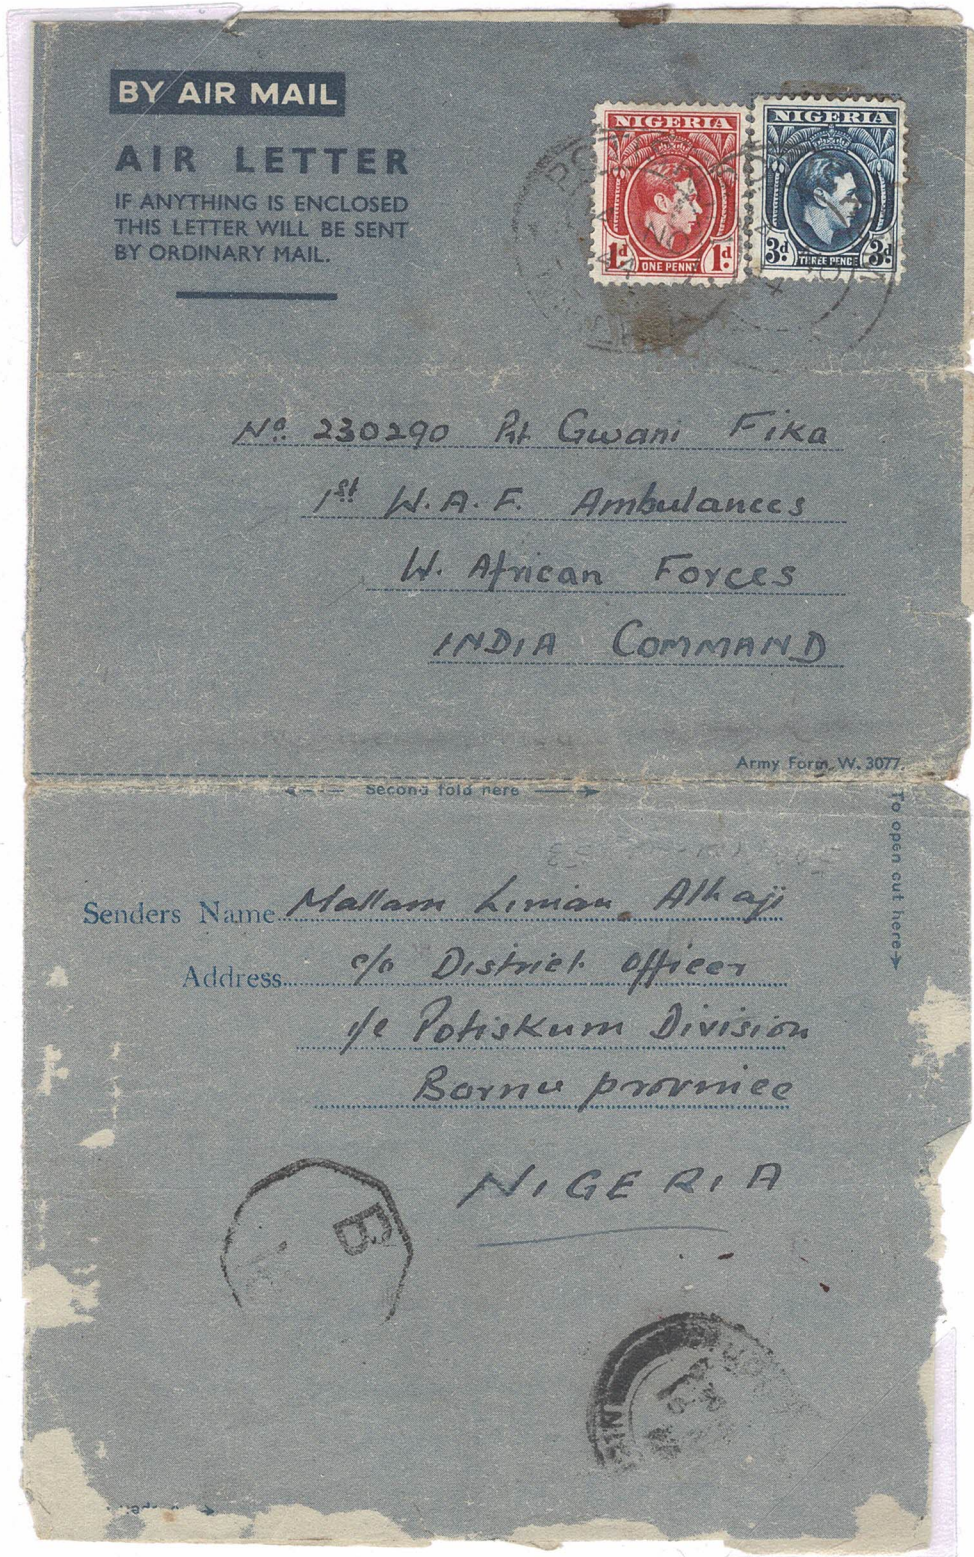 BY AIR MAIL
AIR LETTER
IF ANYTHING IS ENCLOSED
THIS LETTER WILL BE SENT
BY ORDINARY MAIL.
NIGERIA
1d ONE PENNY 1d
NIGERIA
3d THREE PENCE 3d
No. 230290 Pt Gwani Fika
1st W.A.F. Ambulances
W. African Forces
INDIA COMMAND
Army Form W. 3077.
Second fold here
To open cut here
Senders Name Mallam Liman Alhaji
Address c/o District Officer
i/c Potiskum Division
Bornu province
NIGERIA
B